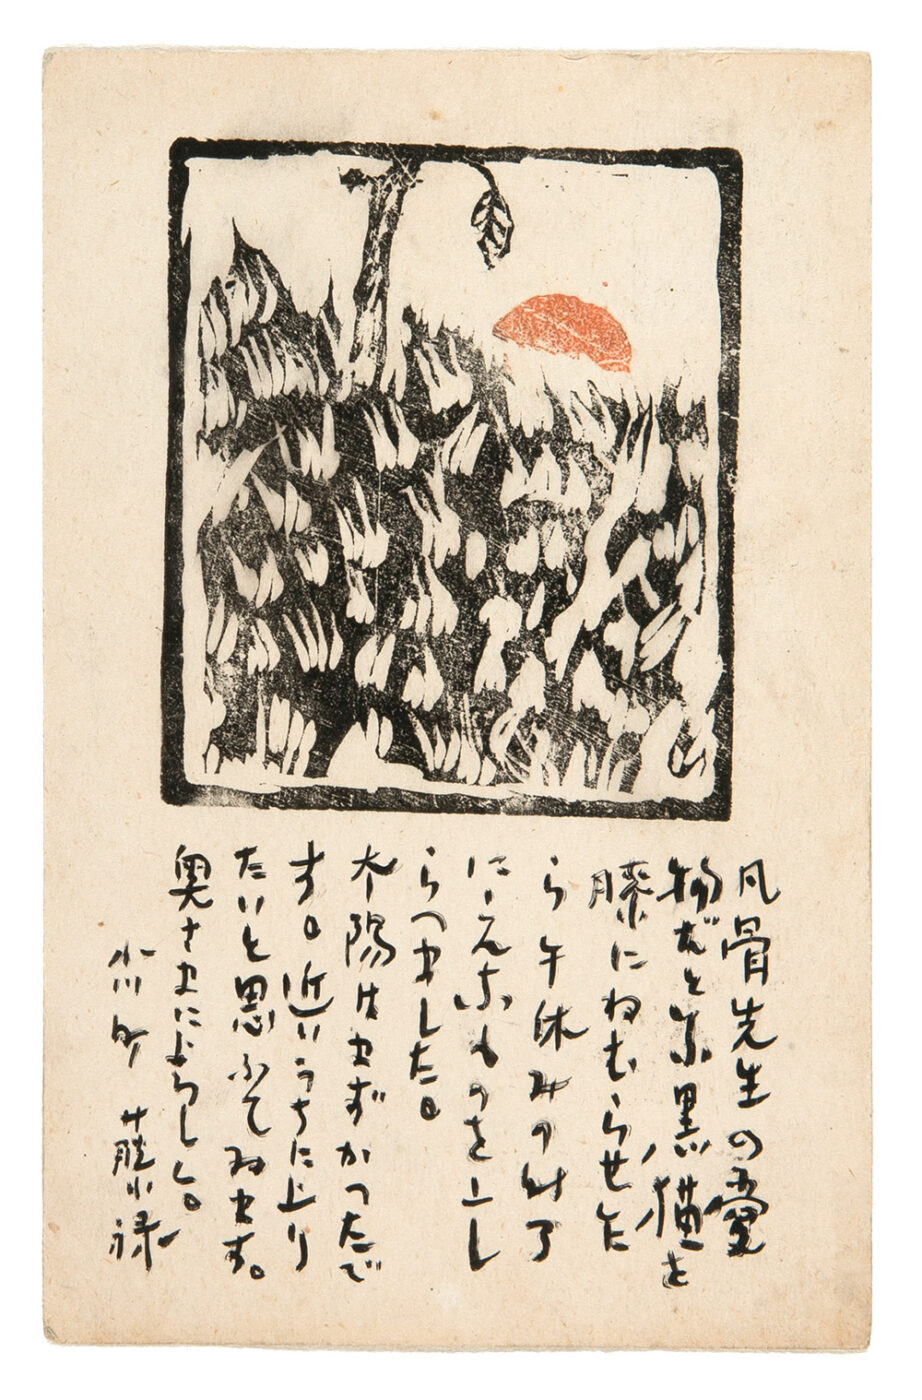 凡骨先生の愛
物だと云ふ黒猫を
膝にねむらせた
ら午休みの
にこんなものを上し
らへました。
太陽はまずかったで
す。近いうちに上り
たいと思ふてゐます。
奥さまによろしく。
小川町 藤禄